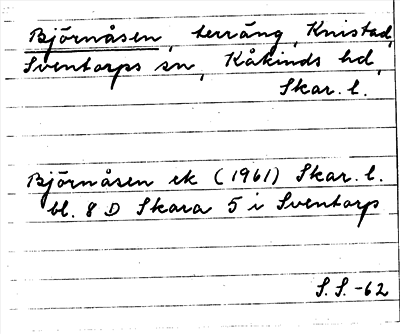 Björnåsen, terräng, Knistad,
Sventorps sn, Kåkinds hd,
Skar. l.
Björnåsen ek (1961) Skar. l.
bl. 8 D Skara 5 i Sventorp
S.S.-62